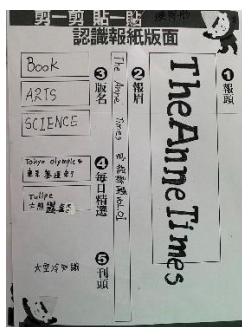 剪一剪 貼一貼
認識報紙版面
❶報頭
The Anne Times
❷報眉
The Anne Times
❸版名
Book
ARTS
SCIENCE
❹每日精選
Tokyo olympic
東京奧運
Tulips
❺刊頭
太空冷知識